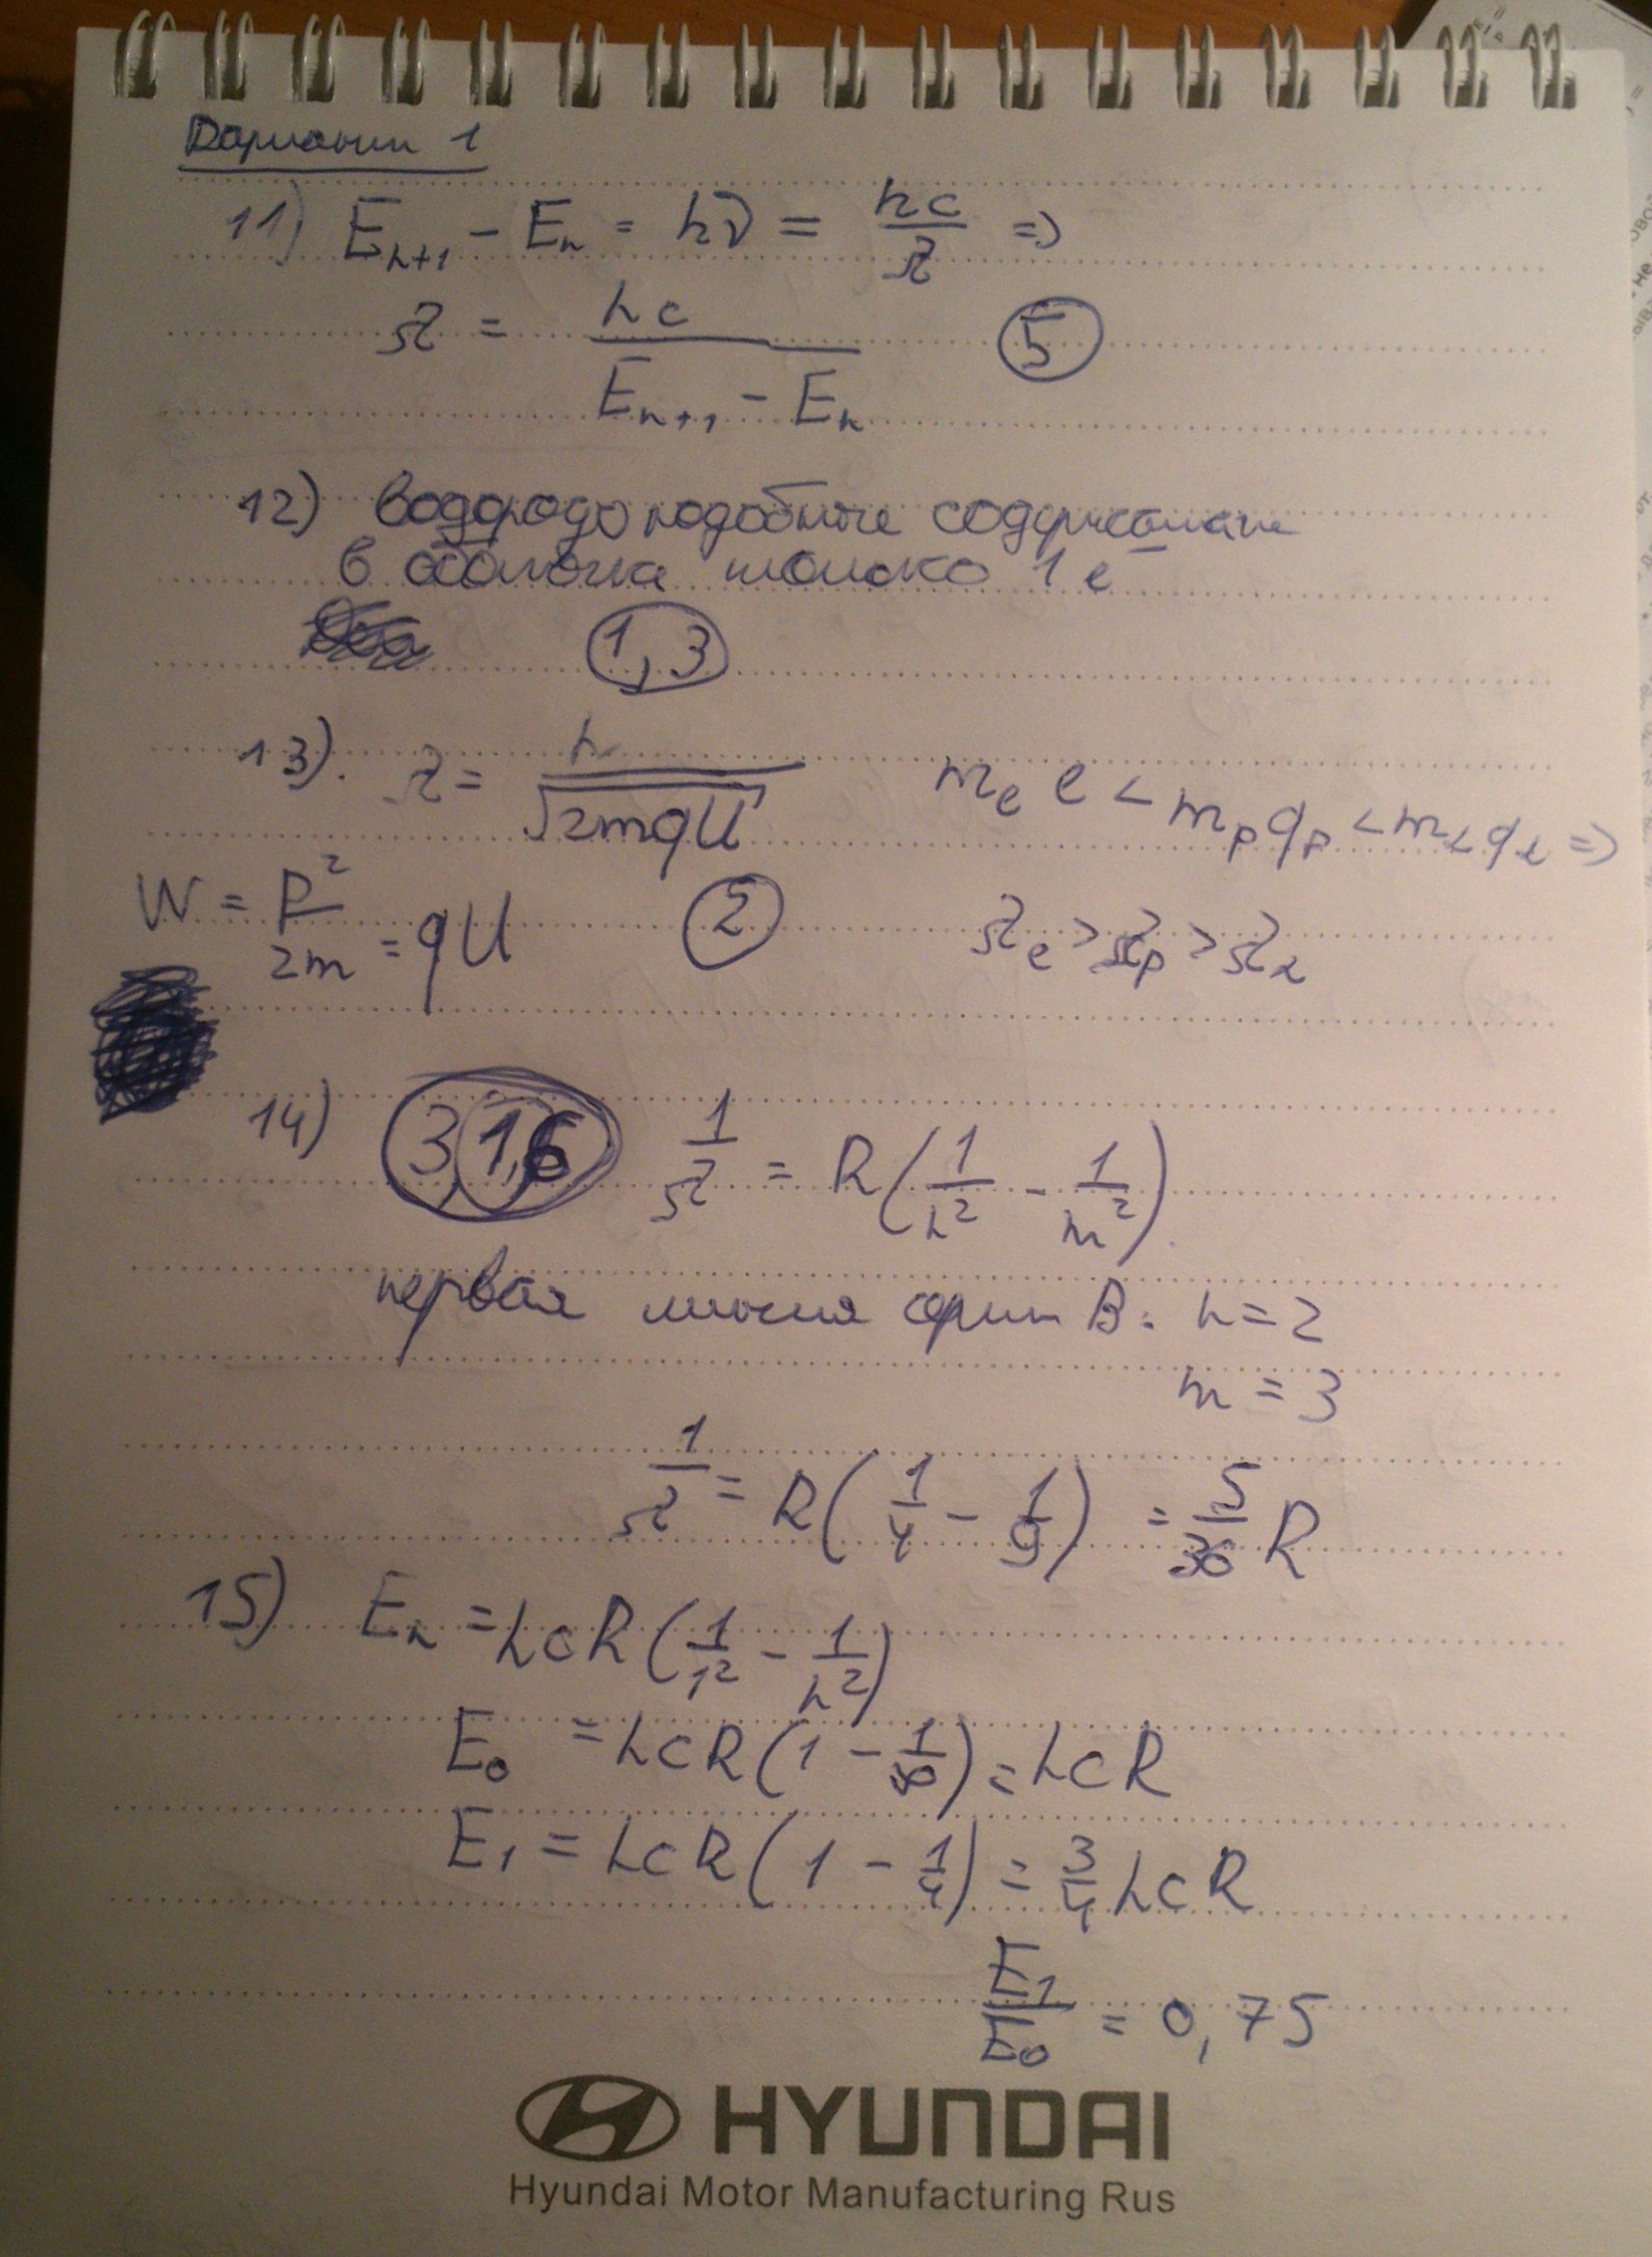 Вариант 1
11) E_{n+1} - E_n = hν = \frac{hc}{λ} =>
λ = \frac{hc}{E_{n+1} - E_n} 5
12) водородоподобные содержащие
в оболочке только 1 e⁻
1,3
13). λ = \frac{h}{\sqrt{2mqU}} m_e e < m_p q_p < m_α q_α =>
W = \frac{P^2}{2m} = qU 2 λ_e > λ_p > λ_α
14) 3, 1,6 \frac{1}{λ} = R(\frac{1}{n^2} - \frac{1}{m^2})
первая линия серии B: n = 2
m = 3
\frac{1}{λ} = R(\frac{1}{4} - \frac{1}{9}) = \frac{5}{36} R
15) E_n = hcR(\frac{1}{1^2} - \frac{1}{n^2})
E_0 = hcR(1 - \frac{1}{∞}) = hcR
E_1 = hcR(1 - \frac{1}{4}) = \frac{3}{4} hcR
\frac{E_1}{E_0} = 0,75
HYUNDAI
Hyundai Motor Manufacturing Rus